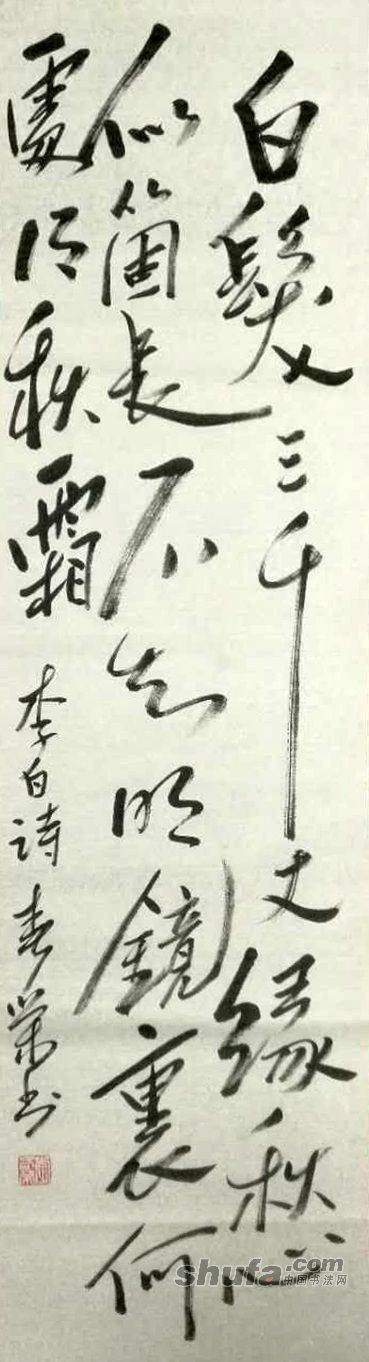 白髮三千丈緣愁
似箇長不知明鏡裏何
處得秋霜
李白詩 春榮书
shufa.com
中国书法网